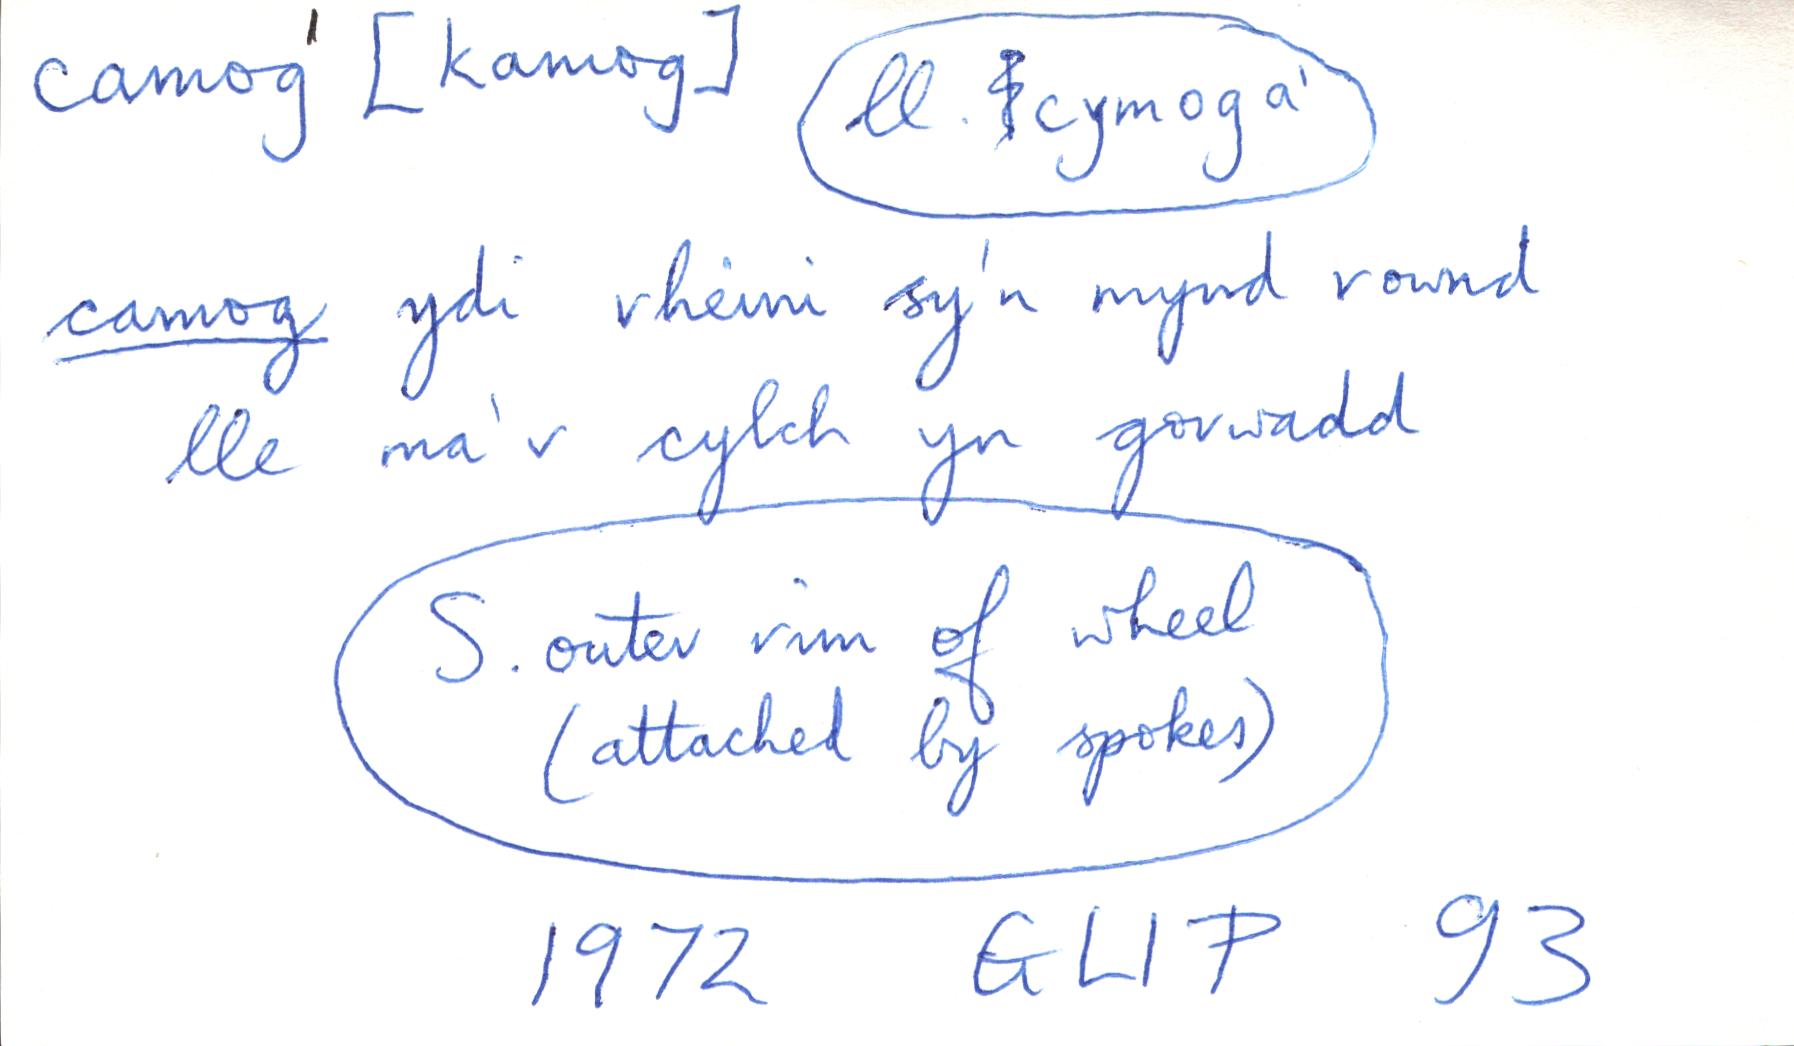 camog' [kamog] ll. cymoga'
camog ydi rheini sy'n mynd rownd
lle ma'r cylch yn gorwadd
S. outer rim of wheel
(attached by spokes)
1972 GLlP 93